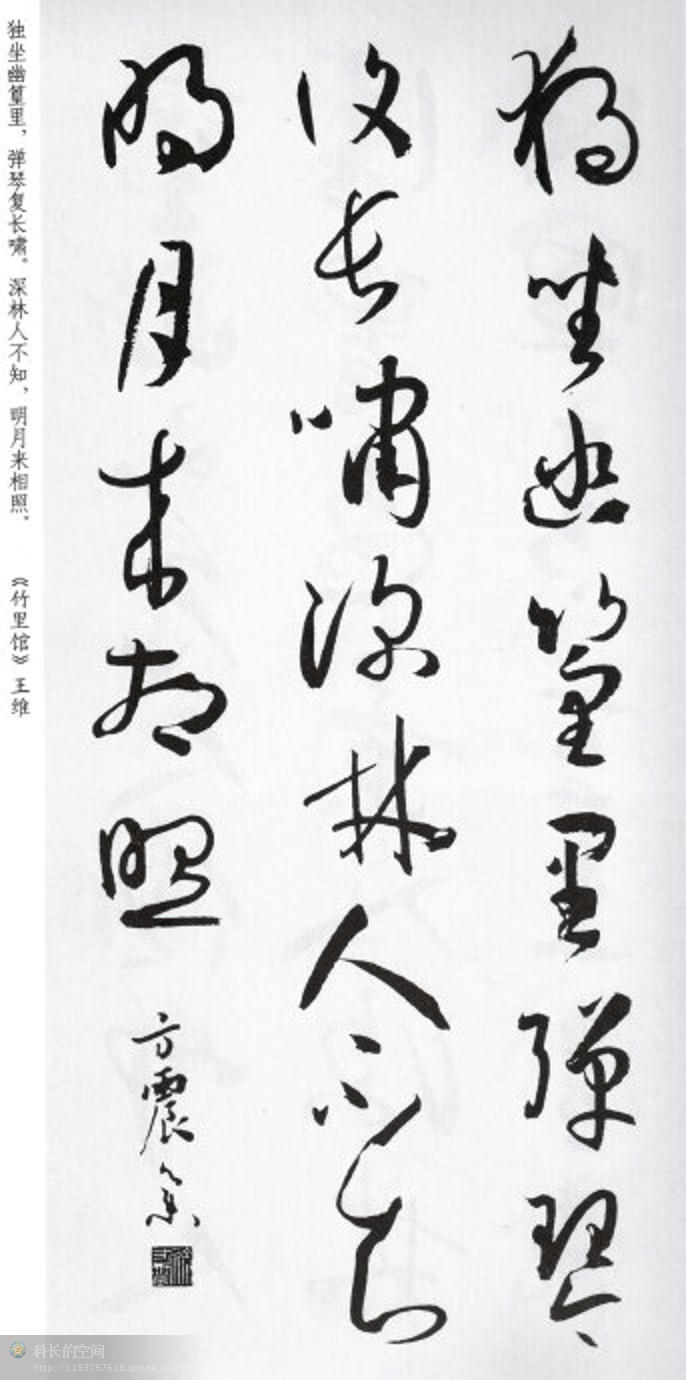 獨坐幽篁里彈琴
復長嘯深林人不知
明月来相照
方震
独坐幽篁里，弹琴复长啸。深林人不知，明月来相照。 《竹里馆》王维
科长的空间
http://1193767618.qzone.qq.com